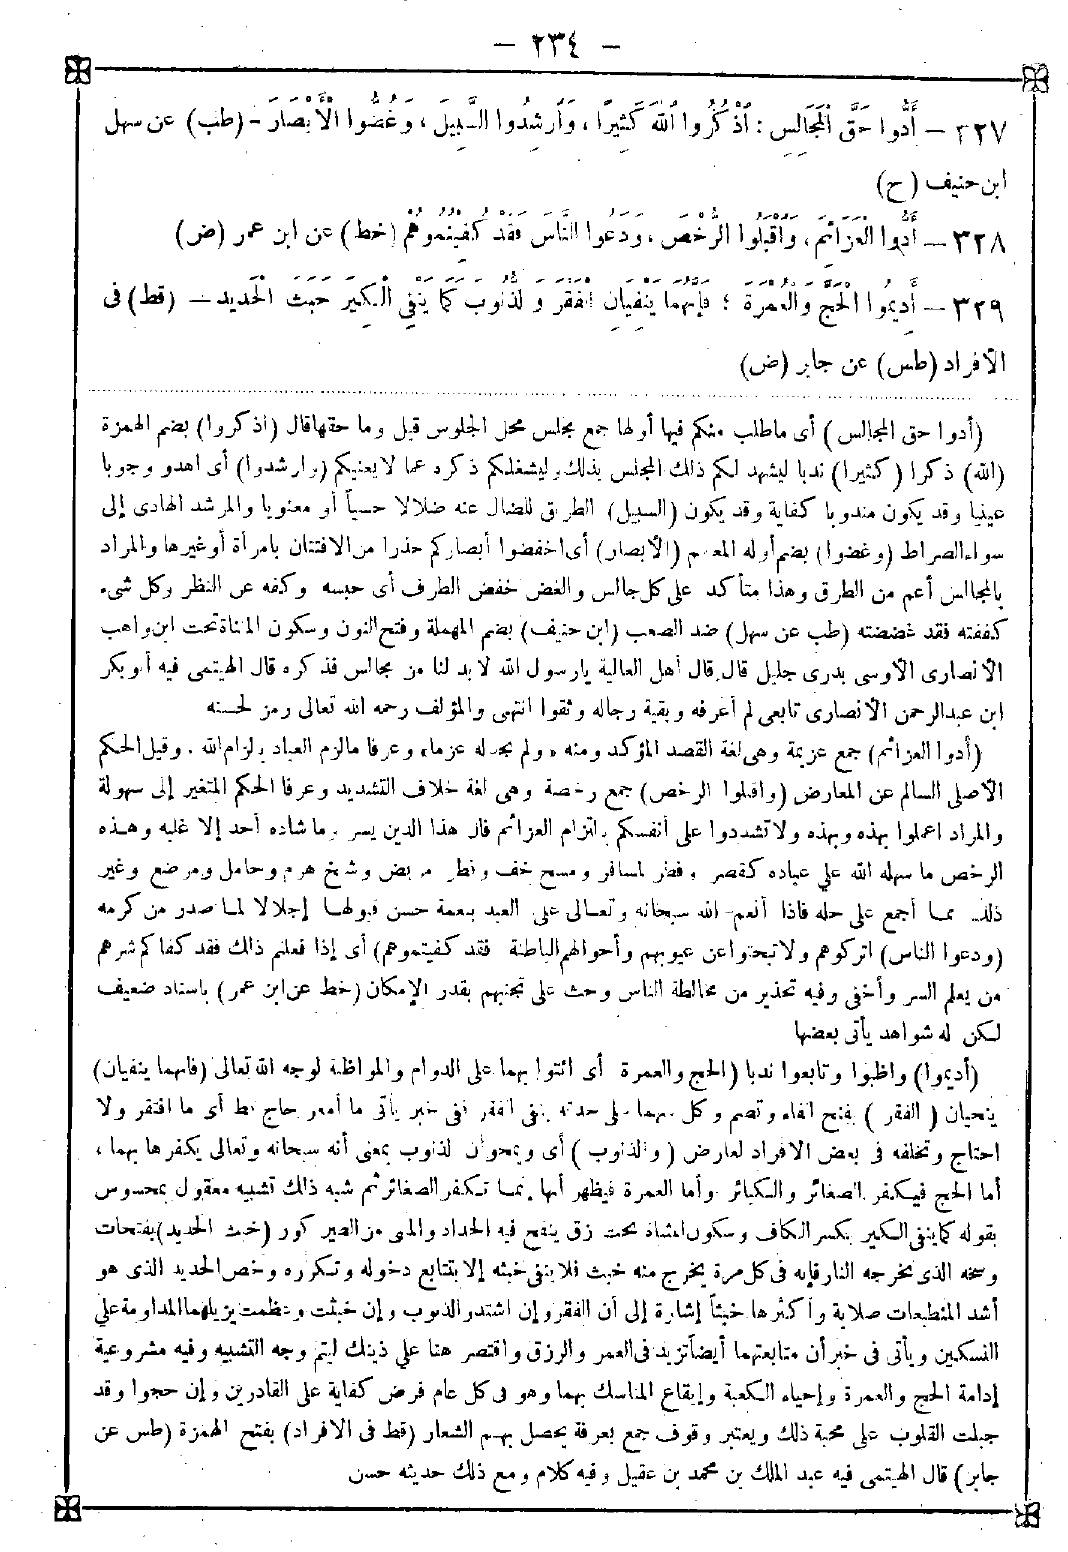 — ٢٣٤ —
٣٢٧ — أَدُّوا حَقَّ الْمَجَالِسِ : اُذْكُرُوا اللّٰهَ كَثِيرًا ، وَأَرْشِدُوا السَّبِيلَ ، وَغُضُّوا الْأَبْصَارَ - (طب) عن سهل
ابن حنيف (ح)
٣٢٨ — أَدُّوا الْعَزَائِمَ ، وَاقْبَلُوا الرُّخَصَ ، وَدَعُوا النَّاسَ فَقَدْ كُفِيتُمُوهُمْ (خط) عن ابن عمر (ض)
٣٢٩ — أَدِيمُوا الْحَجَّ وَالْعُمْرَةَ ؛ فَإِنَّهُمَا يَنْفِيَانِ الْفَقْرَ وَالذُّنُوبَ كَمَا يَنْفِي الْكِيرُ خَبَثَ الْحَدِيدِ — (قط) فى
الأفراد (طس) عن جابر (ض)
(أدوا حق المجالس) أى ماطلب منكم فيها أولها جمع مجلس محل الجلوس قيل وما حقها قال (اذكروا) بضم الهمزة
(الله) ذكرا (كثيرا) ندبا ليشهد لكم ذلك المجلس بذلك وليشغلكم ذكره عما لا يعنيكم (وارشدوا) أى اهدو وجوبا
عينيا وقد يكون مندوبا كفاية وقد يكون (السبيل) الطريق للضال عنه ضلالا حسياً أو معنويا والمرشد الهادى إلى
سواء الصراط (وغضوا) بضم أوله المعجم (الأبصار) أى اخفضوا أبصاركم حذرا من الافتتان بامرأة أو غيرها والمراد
بالمجالس أعم من الطرق وهذا متأكد على كل جالس والغض خفض الطرف أى حبسه وكفه عن النظر وكل شىء
كففته فقد غضضته (طب عن سهل) ضد الصعب (ابن حنيف) بضم المهملة وفتح النون وسكون المثناة تحت ابن واهب
الأنصارى الأوسى بدرى جليل قال قال أهل العالية يارسول الله لا بد لنا من مجالس فذكره قال الهيتمى فيه أبو بكر
ابن عبد الرحمن الأنصارى تابعى لم أعرفه وبقية رجاله وثقوا انتهى والمؤلف رحمه الله تعالى رمز لحسنه
(أدوا العزائم) جمع عزيمة وهى لغة القصد المؤكد ومنه « ولم نجد له عزما » وعرفا مالزم العباد بالزام الله . وقيل الحكم
الأصلى السالم عن المعارض (واقبلوا الرخص) جمع رخصة وهى لغة خلاف التشديد وعرفا الحكم المتغير إلى سهولة
والمراد اعملوا بهذه وبهذه ولا تشددوا على أنفسكم بالتزام العزائم فان هذا الدين يسر وما شاده أحد إلا غلبه وهذه
الرخص ما سهله الله على عباده كقصر وفطر لمسافر ومسح خف وفطر مريض وشيخ هرم وحامل ومرضع وغير
ذلك مما أجمع على حله فاذا أنعم الله سبحانه وتعالى على العبد بنعمة حسن قبولها إجلالا لما صدر من كرمه
(ودعوا الناس) اتركوهم ولا تبحثوا عن عيوبهم وأحوالهم الباطنة فقد كفيتموهم) أى إذا فعلتم ذلك فقد كفاكم شرهم
من يعلم السر وأخفى وفيه تحذير من مخالطة الناس وحث على تجنبهم بقدر الإمكان (خط عن ابن عمر) باسناد ضعيف
لكن له شواهد يأتى بعضها
(أديموا) واظبوا وتابعوا ندبا (الحج والعمرة أى ائتوا بهما على الدوام والمواظبة لوجه الله تعالى (فانهما ينفيان)
ينحيان (الفقر) بفتح الفاء وتضم وكل منهما على حدته ينفى الفقر ففى خبر يأتى ما أمعر حاج قط أى ما افتقر ولا
احتاج وتخلفه فى بعض الافراد لعارض (والذنوب) أى ويمحوان الذنوب بمعنى أنه سبحانه وتعالى يكفرها بهما ،
أما الحج فيكفر الصغائر والكبائر وأما العمرة فيظهر أنها إنما تكفر الصغائر ثم شبه ذلك تشبيه معقول بمحسوس
بقوله كما ينفى الكير بكسر الكاف وسكون المثناة تحت زق ينفخ فيه الحداد والمبنى من الطين كور (خبث الحديد) بفتحات
وسخه الذى تخرجه النار فإنه فى كل مرة يخرج منه خبث فلا ينفى خبثه إلا بتتابع دخوله وتكرره وخص الحديد الذى هو
أشد المنطبعات صلابة وأكثرها خبثاً إشارة إلى أن الفقر وإن اشتد والذنوب وإن خبثت وعظمت يزيلهما المداومة على
النسكين ويأتى فى خبر أن متابعتهما أيضا تزيد فى العمر والرزق واقتصر هنا على ذينك ليتم وجه التشبيه وفيه مشروعية
إدامة الحج والعمرة وإحياء الكعبة وإيقاع المناسك بهما وهو فى كل عام فرض كفاية على القادرين وإن حجوا وقد
جبلت القلوب على محبة ذلك ويعتبر وقوف جمع بعرفة يحصل بهم الشعار (قط فى الافراد) بفتح الهمزة (طس عن
جابر) قال الهيتمى فيه عبد الملك بن محمد بن عقيل وفيه كلام ومع ذلك حديثه حسن